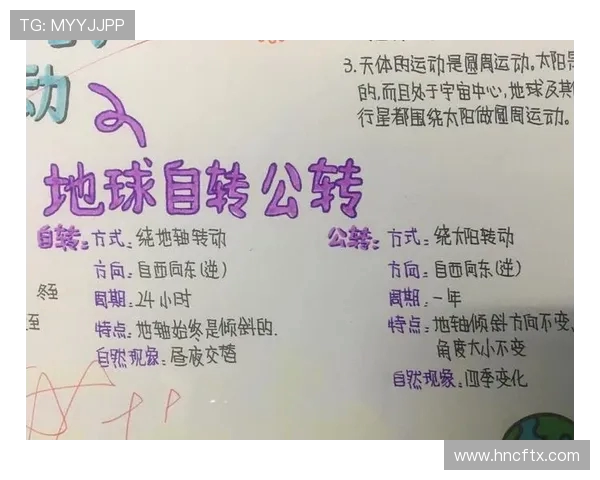 TG: MYYJJPP
动
3.天体的运动是圆周运动。太阳是
的,而且处于宇宙中心,地球及其
行星都围绕太阳做圆周运动。
地球自转公转
自转: 方式: 绕地轴转动
方向: 自西向东(逆)
周期: 24小时
特点: 地轴始终是倾斜的.
自然现象: 昼夜交替
冬至
至
公转: 方式: 绕太阳转动
方向: 自西向东(逆)
周期: 一年
特点: 地轴倾斜方向不变,
角度大小不变
自然现象: 四季变化
www.hncftx.com